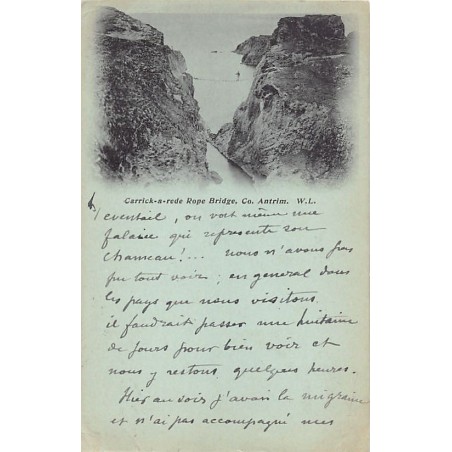 Carrick-a-rede Rope Bridge, Co. Antrim. W.L.
l'eventail, on voit même une
falaise qui represente son
chameau!... nous n'avons pas
pu tout voir; en general dans
les pays que nous visitons
il faudrait passer une huitaine
de jours pour bien voir et
nous y restons quelques heures.
Hier au soir j'avais la migraine
et n'ai pas accompagné mes